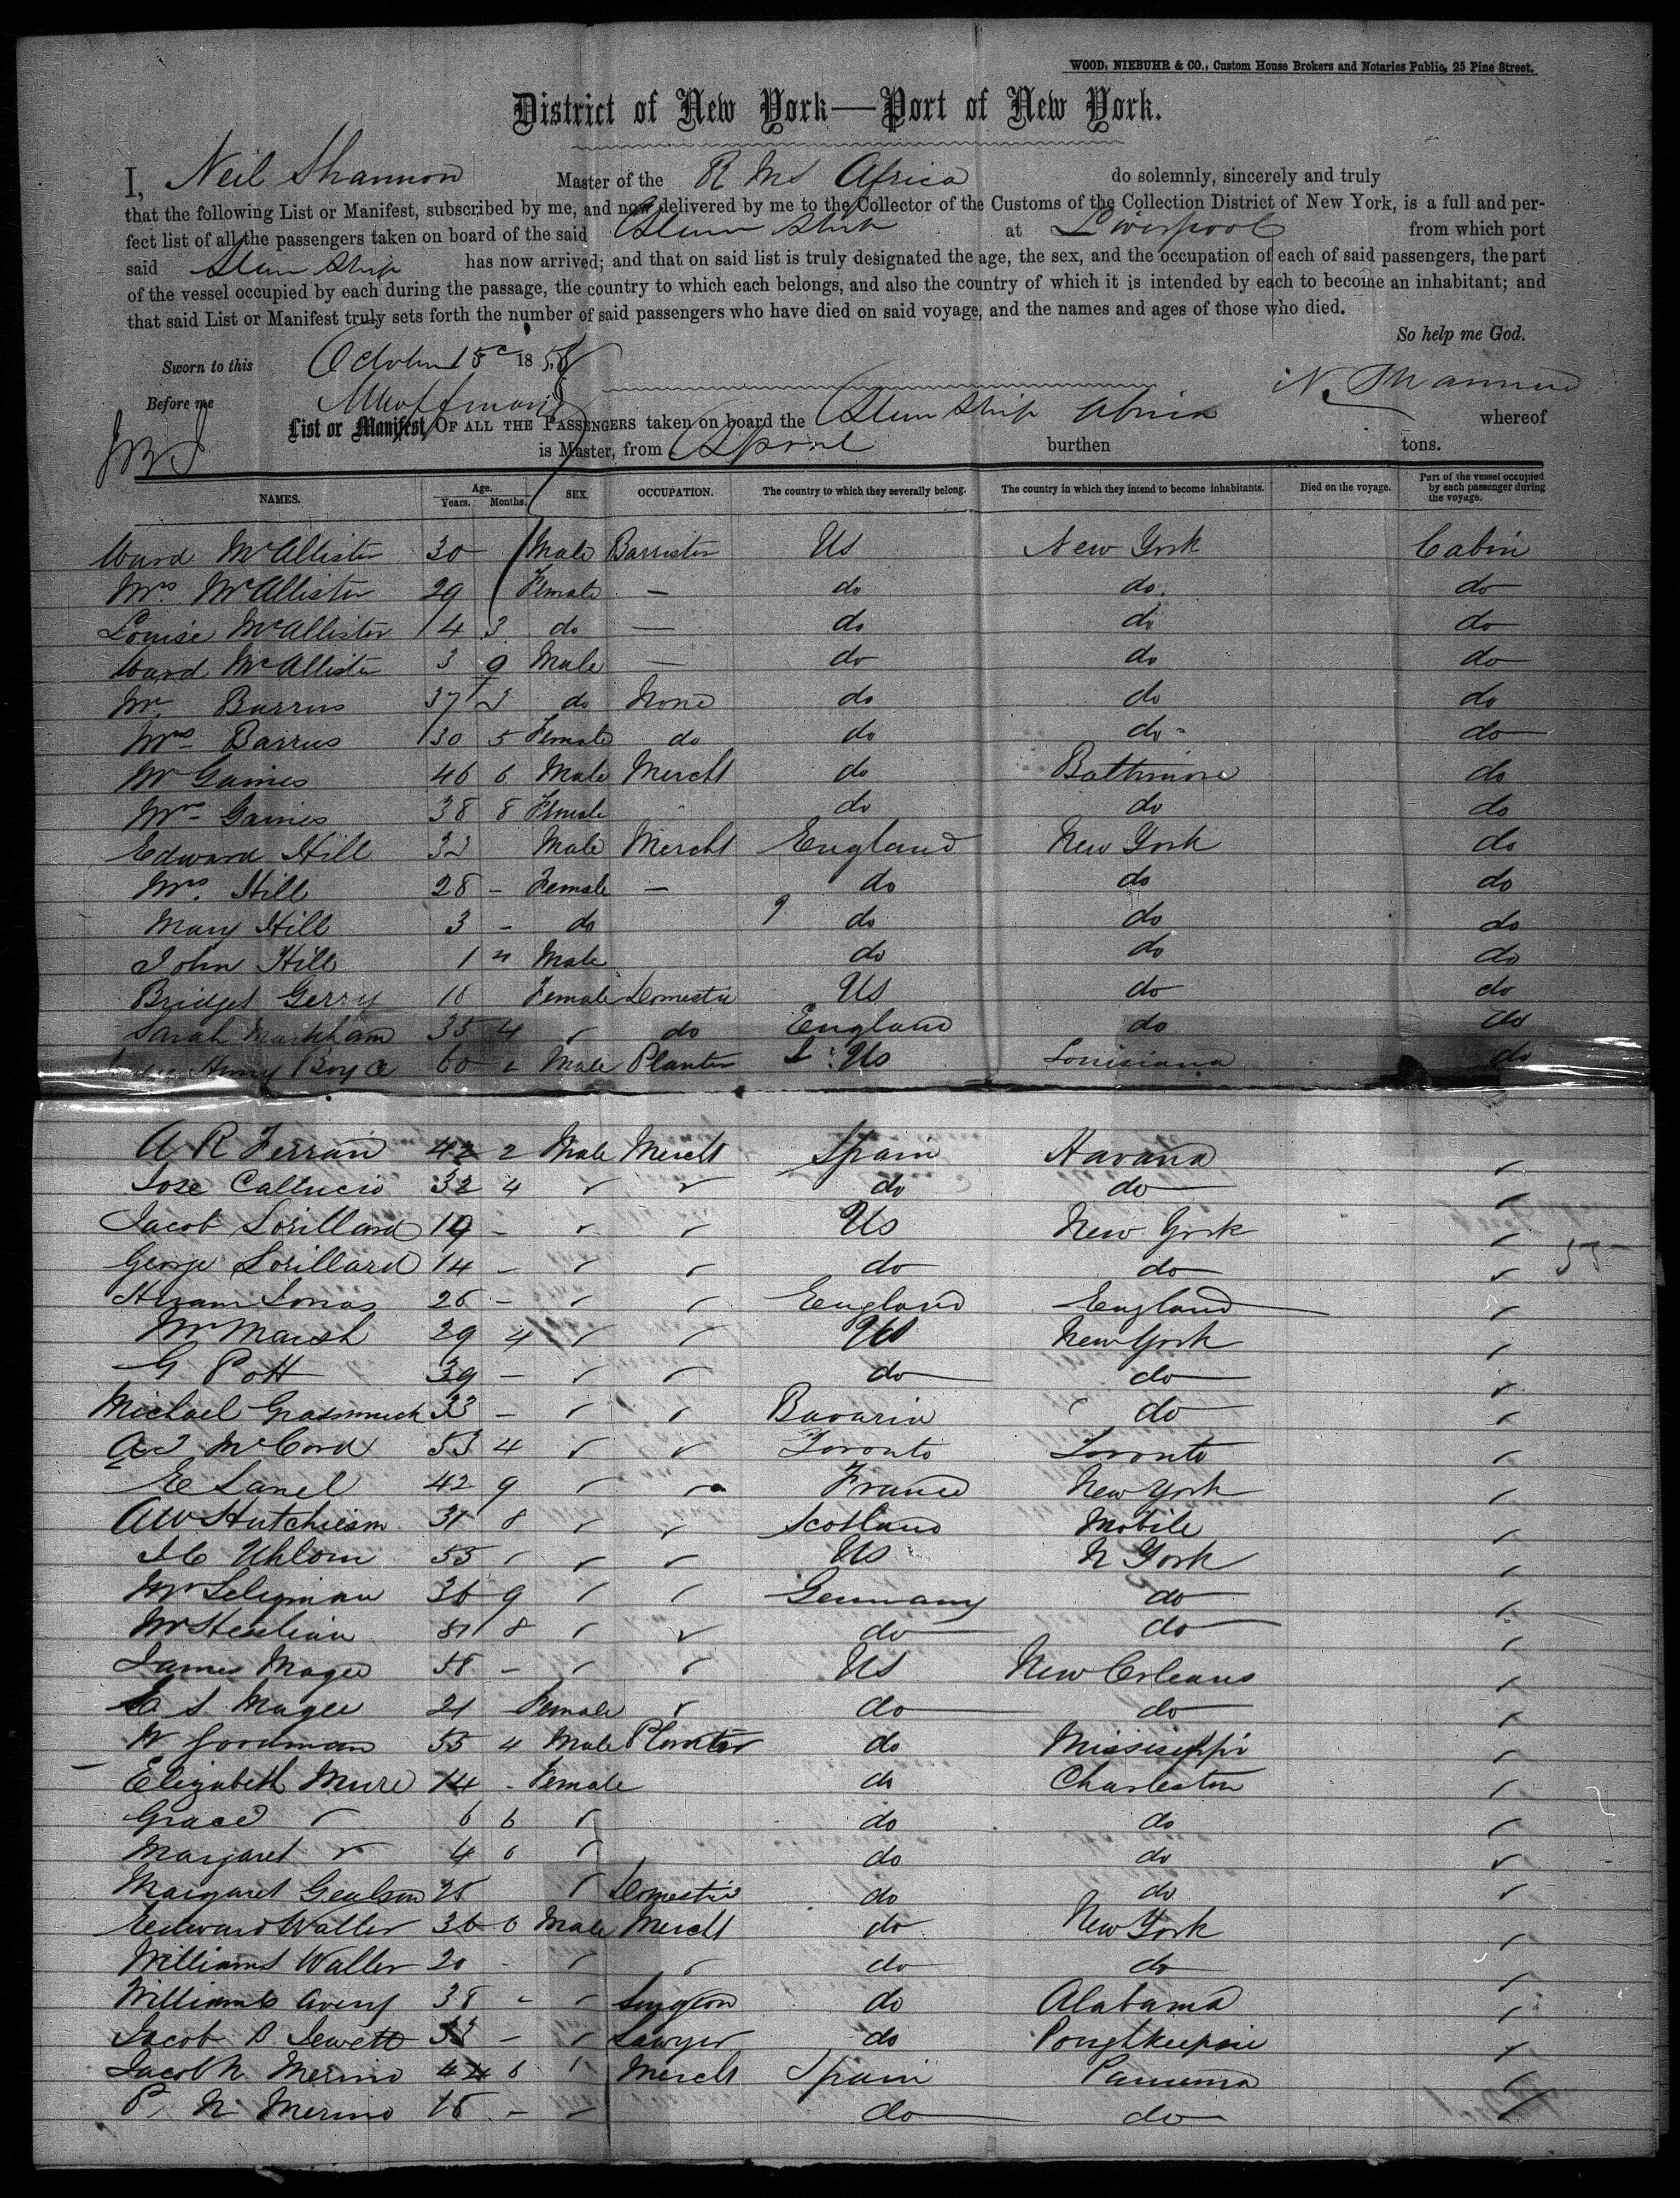 WOOD, NIEBUHR & CO., Custom House Brokers and Notaries Public, 25 Pine Street.
District of New York—Port of New York.
I, Neil Shannon Master of the R M S Africa do solemnly, sincerely and truly
that the following List or Manifest, subscribed by me, and now delivered by me to the Collector of the Customs of the Collection District of New York, is a full and per-
fect list of all the passengers taken on board of the said Steam Ship at Liverpool from which port
said Steam Ship has now arrived; and that on said list is truly designated the age, the sex, and the occupation of each of said passengers, the part
of the vessel occupied by each during the passage, the country to which each belongs, and also the country of which it is intended by each to become an inhabitant; and
that said List or Manifest truly sets forth the number of said passengers who have died on said voyage, and the names and ages of those who died.
So help me God.
Sworn to this October 15 1858
N. Shannon
Before me
List or Manifest, OF ALL THE PASSENGERS taken on board the Steam Ship Africa whereof
is Master, from burthen tons.
NAMES. Age. Years. Months. SEX. OCCUPATION. The country to which they severally belong. The country in which they intend to become inhabitants. Died on the voyage. Part of the vessel occupied by each passenger during the voyage.
Ward McAllister 30 Male Barrister US New York Cabin
Mrs. McAllister 29 Female — do do. do
Louise McAllister 4 3 do — do do do
Ward McAllister 3 9 Male — do do do
Mr. Burrus 37 3 do None do do do
Mrs Barrus 30 5 Female do do do do
Mr Gaines 46 6 Male Mercht do Balthimore do
Mrs Gaines 38 8 Female do do do
Edward Hill 32 Male Mercht England New York do
Mrs. Hill 28 - Female — do do do
Mary Hill 3 - do do do do
John Hill 1 " Male do do do
Bridget Gerry 18 Female Domestic US do do
Sarah Markham 35 4 ✓ do England do do
Henry Boyce 60 2 Male Planter US Louisiana do
A R Ferran 42 2 Male Mercht Spain Havana ✓
Jose Callucio 32 4 ✓ ✓ do do ✓
Jacob Lorillard 19 - ✓ ✓ US New York ✓
George Lorillard 14 - ✓ ✓ do do ✓
55
Hiram 26 - ✓ ✓ England England ✓
Mr Marsh 29 4 ✓ ✓ US New York ✓
G Pott 39 - ✓ ✓ do do ✓
Michael Grassmuck 33 - ✓ ✓ Bavaria do ✓
A T McCord 53 4 ✓ ✓ Toronto Toronto ✓
E Lanel 42 9 ✓ ✓ France New York ✓
AW Hutchieson 31 8 ✓ ✓ Scotland Mobile ✓
55 ✓ ✓ ✓ US N York ✓
Mr Seligman 36 9 ✓ ✓ Germany do ✓
8 ✓ ✓ do do ✓
James Magee 58 - ✓ ✓ US New Orleans ✓
S Magee 21 Female ✓ do do ✓
W Goodman 55 4 Male Planter do Missisippi ✓
Elizabeth Mure 14 - Female do Charleston ✓
Grace ✓ 6 6 ✓ do do ✓
Margaret ✓ 4 6 ✓ do do ✓
Margaret 25 ✓ Domestic do do ✓
Edward Waller 36 6 Male Mercht do New York ✓
William S Waller 20 - ✓ ✓ do do ✓
William C Avery 38 - ✓ Surgeon do Alabama ✓
Jacob B Jewett 33 - ✓ Lawyer do Poughkeepsie ✓
Jacob N Merino 44 6 ✓ Mercht Spain Panama ✓
P. N Merino 18 - - do do ✓